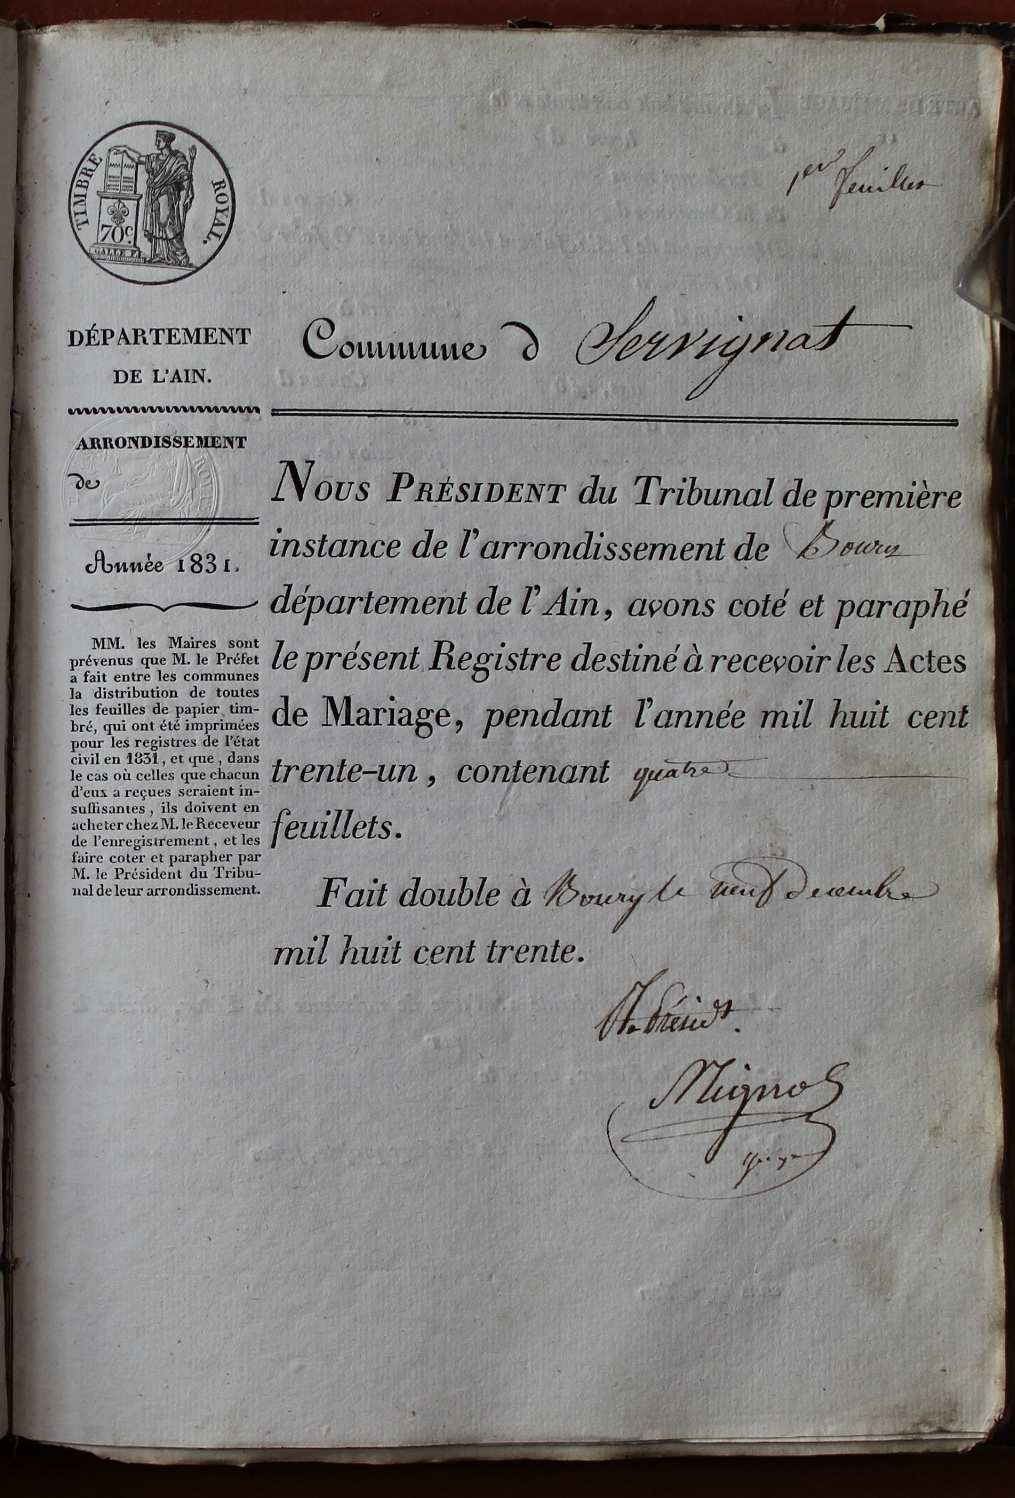 1er feuillet
TIMBRE ROYAL.
70c
GALLE F.
DÉPARTEMENT
DE L'AIN.
ARRONDISSEMENT
de
Année 1831.
MM. les Maires sont
prévenus que M. le Préfet
a fait entre les communes
la distribution de toutes
les feuilles de papier tim-
bré, qui ont été imprimées
pour les registres de l'état
civil en 1831, et que, dans
le cas où celles que chacun
d'eux a reçues seraient in-
suffisantes, ils doivent en
acheter chez M. le Receveur
de l'enregistrement, et les
faire coter et parapher par
M. le Président du Tribu-
nal de leur arrondissement.
Commune d Servignat
NOUS PRÉSIDENT du Tribunal de première
instance de l'arrondissement de Bourg
département de l'Ain, avons coté et paraphé
le présent Registre destiné à recevoir les Actes
de Mariage, pendant l'année mil huit cent
trente-un, contenant quatre
feuillets.
Fait double à Bourg le neuf décembre
mil huit cent trente.
Présidt.